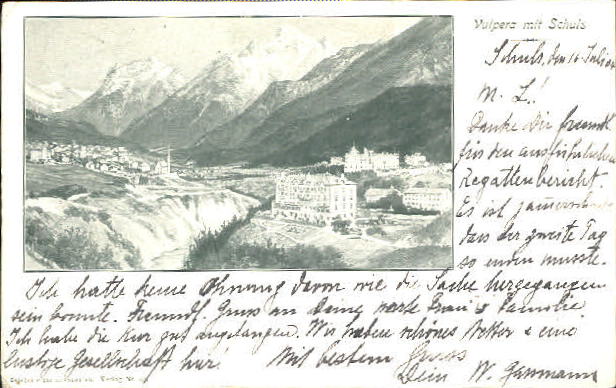 Vulpera mit Schuls
Schuls, den 16 Juli
M. L.!
Danke Dir freundl.
für den ausführlichen
Regattenbericht.
Es ist jammerschade
dass der zweite Tag
so enden musste.
Ich hatte keine Ahnung davon wie die Sache hergegangen
sein konnte. Freundl. Gruss an Deine werte Frau & Familie
Ich habe die Kur gut angefangen. Wir haben schönes Wetter & eine
lustige Gesellschaft hier! Mit bestem Gruss
Dein W.